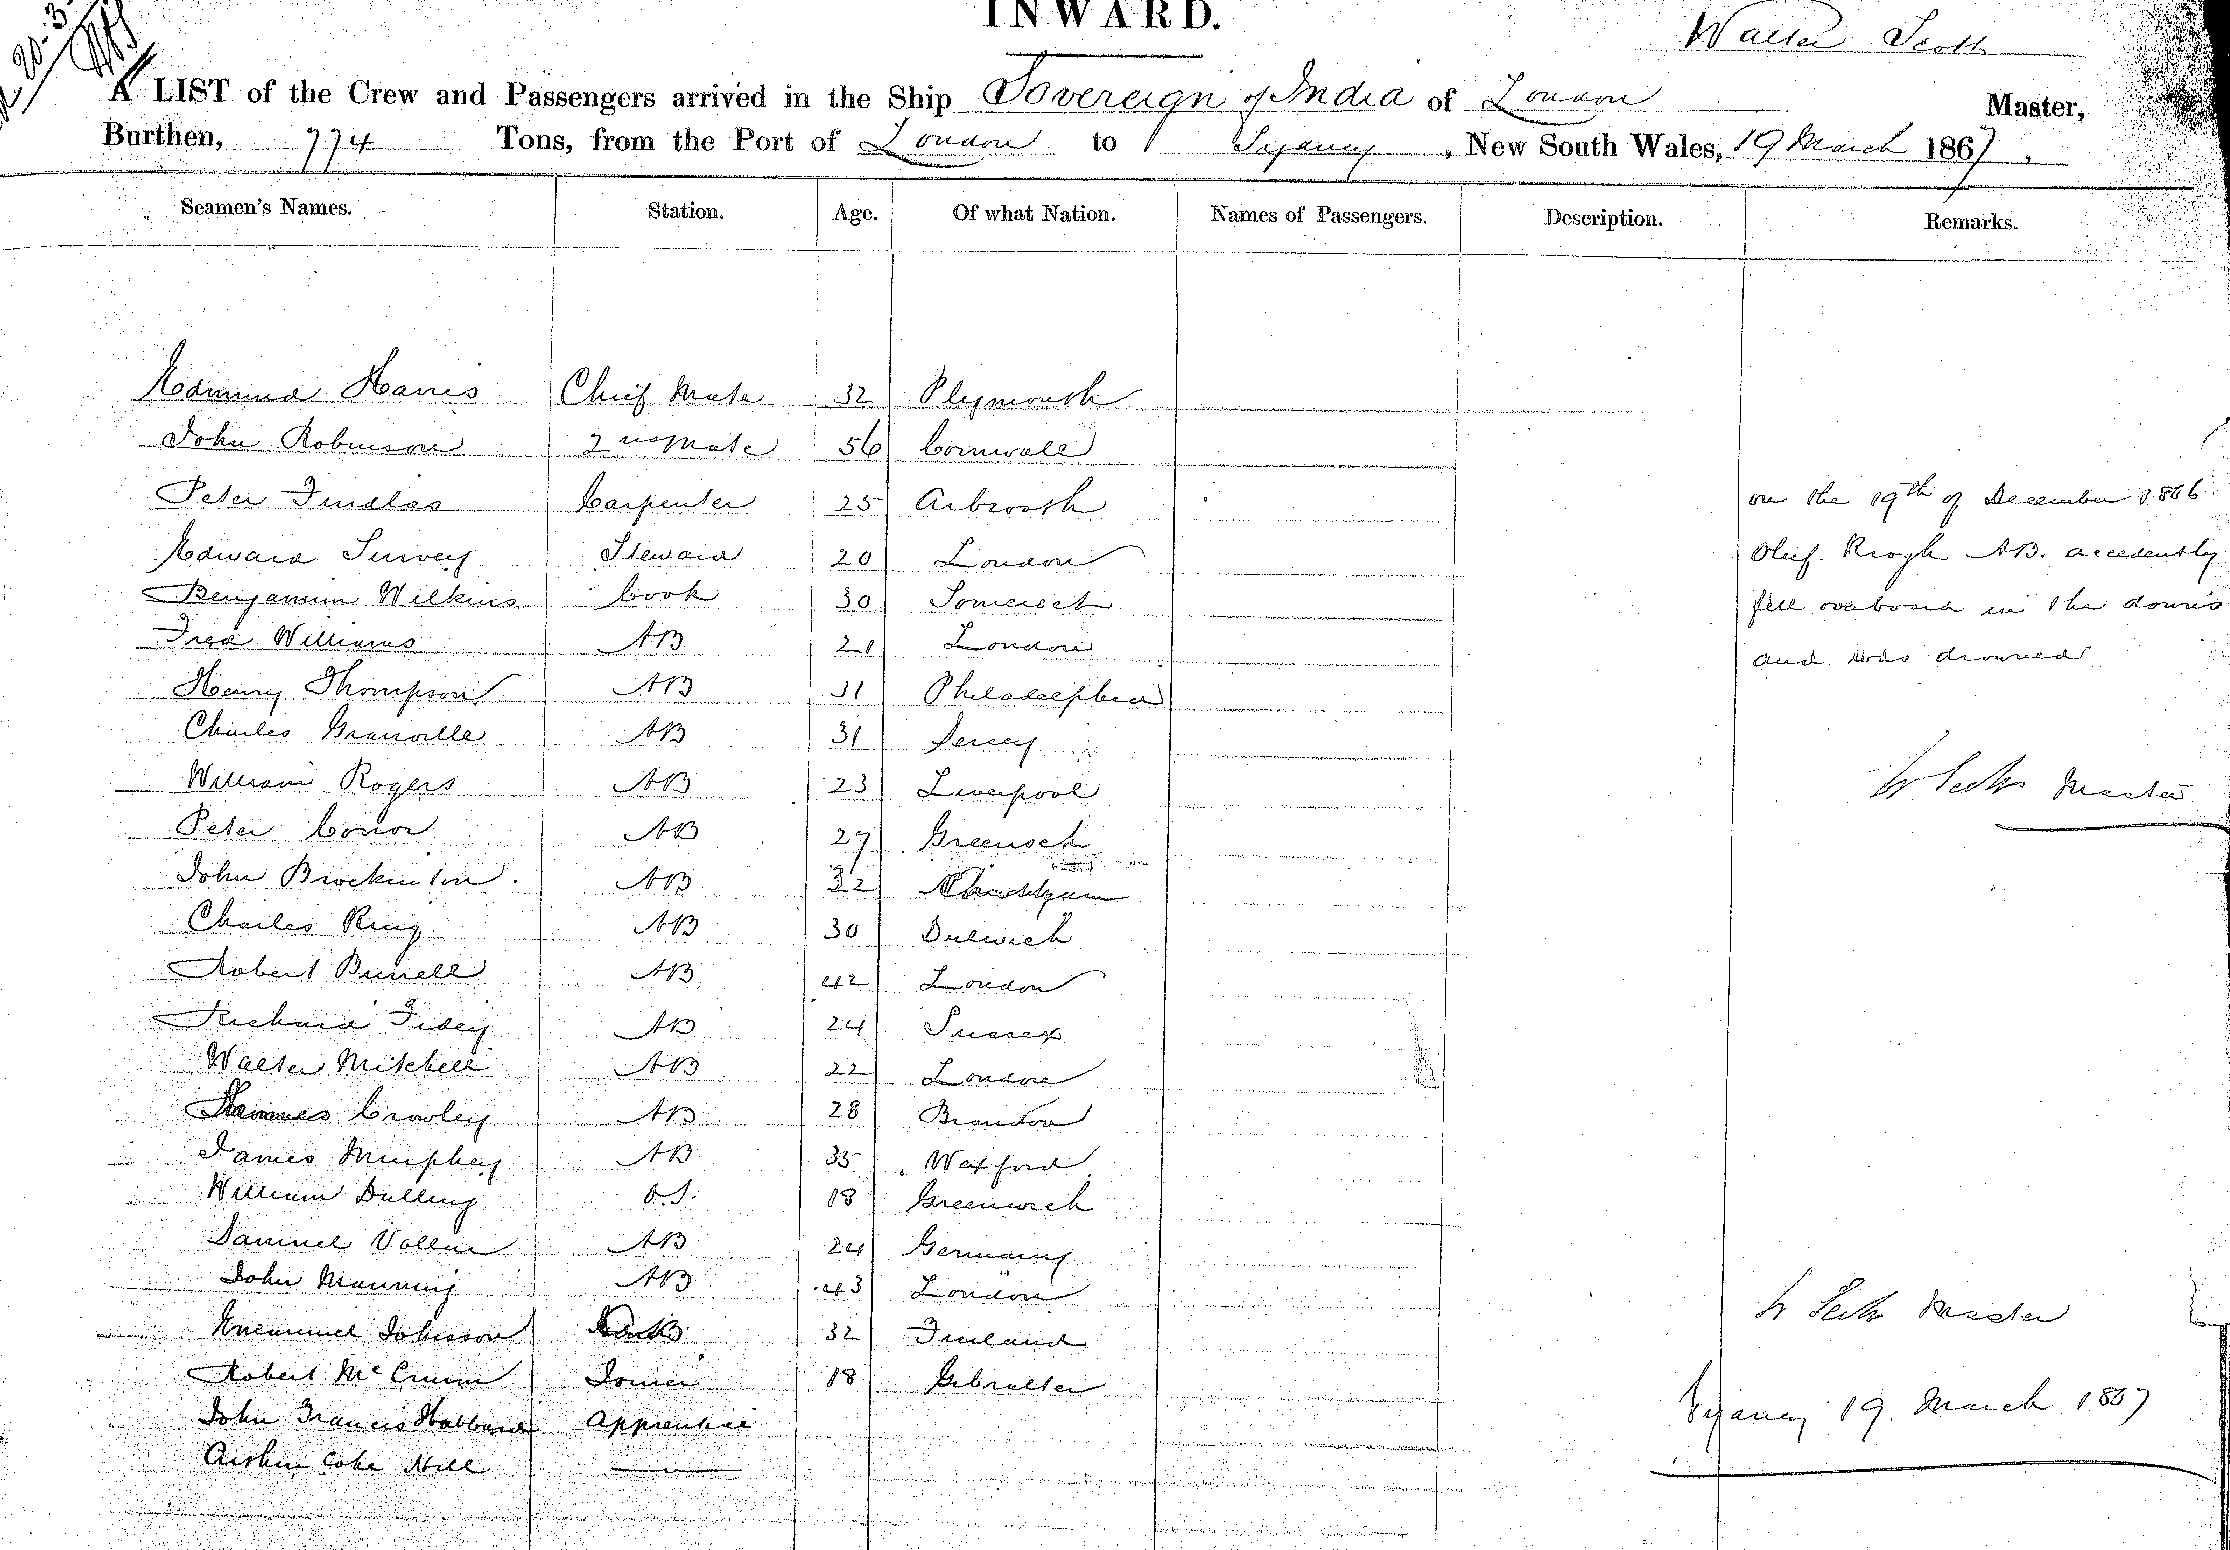 INWARD.
Walter Scott
A LIST of the Crew and Passengers arrived in the Ship Sovereign of India of London Master,
Burthen, 774 Tons, from the Port of London to Sydney, New South Wales, 19 March 1867.
Seamen's Names. Station. Age. Of what Nation. Names of Passengers. Description. Remarks.
Edmund Harris Chief Mate 32 Plymouth
John Robinson 2nd Mate 56 Cornwall
Peter Findlas Carpenter 25 Arbroath
on the 19th of December 1866
Edward Survey Steward 20 London
Oluf Krogh AB. accedently
Benjamin Wilkins Cook 30 Somerset
fell overboard in the downs
Fred Williams AB 21 London
and was drowned
Henry Thompson AB 31 Philadelphia
Charles Granville AB 31 Jersey
William Rogers AB 23 Liverpool
W Scott Master
Peter Conor AB 27 Greenock
John Brockinton AB 32
Charles Ring AB 30 Dulwich
Robert Burrell AB 42 London
Richard Fidey AB 24 Sussex
Walter Mitchell AB 22 London
Crowley AB 28 Brandon
James Murphey AB 35 Wexford
William Dulling O.S. 18 Greenwich
Samuel Vollin AB 24 Germany
John Manning AB 43 London
W Scott Master
Johnson 32 Finland
Robert McCrum 18 Gibralter
Sydney 19 March 1867
John Francis Hubbard Apprentice
Coke Hill